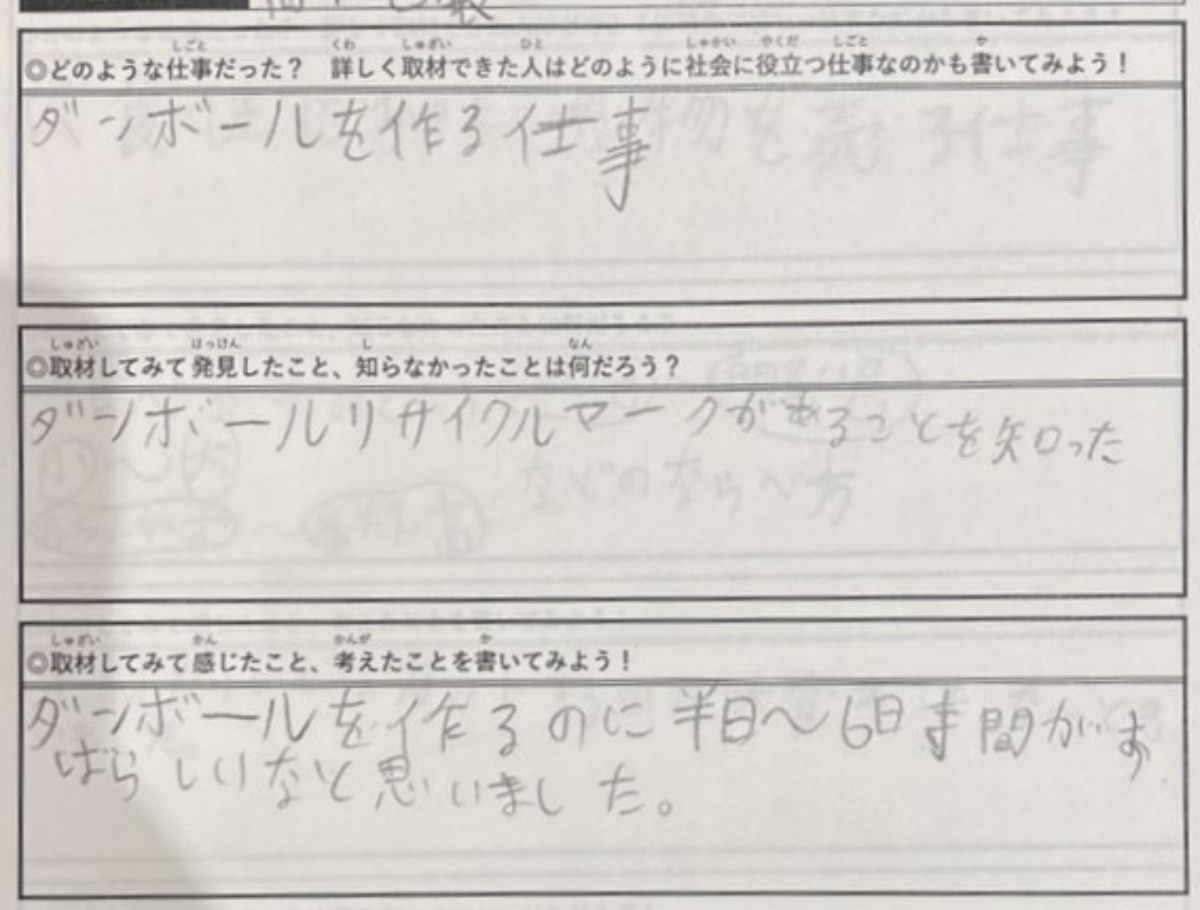 ◎どのような仕事だった？　詳しく取材できた人はどのように社会に役立つ仕事なのかも書いてみよう！
ダンボールを作る仕事
◎取材してみて発見したこと、知らなかったことは何だろう？
ダンボールリサイクルマークがあることを知った
◎取材してみて感じたこと、考えたことを書いてみよう！
ダンボールを作るのに半日〜6日時間がす
ばらしいなと思いました。